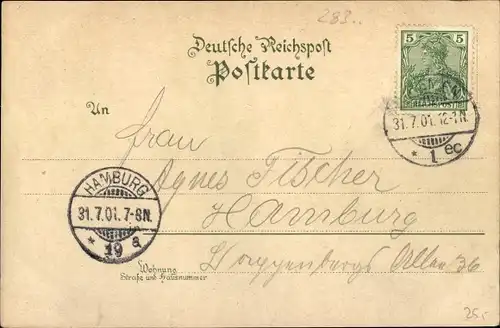 283.
Deutsche Reichspost
Postkarte
5 5
31.7.01.12-1N.
* 1 ec
An
Frau
Agnes Fischer
Hamburg
HAMBURG
31.7.01.7-8N.
* 19 a
Allee 36
Wohnung
Straße und Hausnummer
25.-